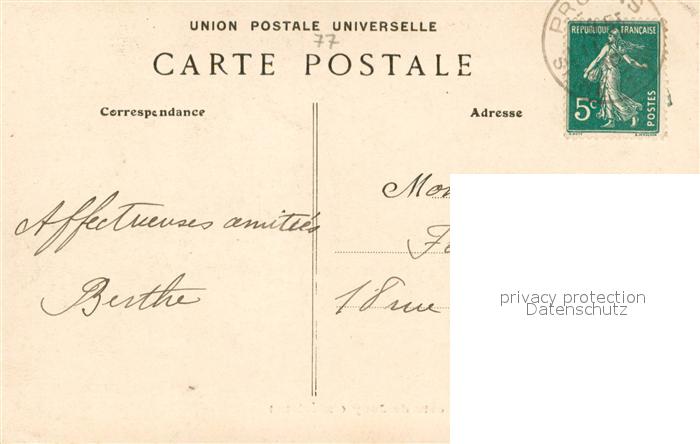 UNION POSTALE UNIVERSELLE
77
CARTE POSTALE
Correspondance
Adresse
PROVINS
REPUBLIQUE FRANÇAISE
5c
POSTES
Affectueuses amitiés
Berthe
Mon
18 rue
privacy protection
Datenschutz